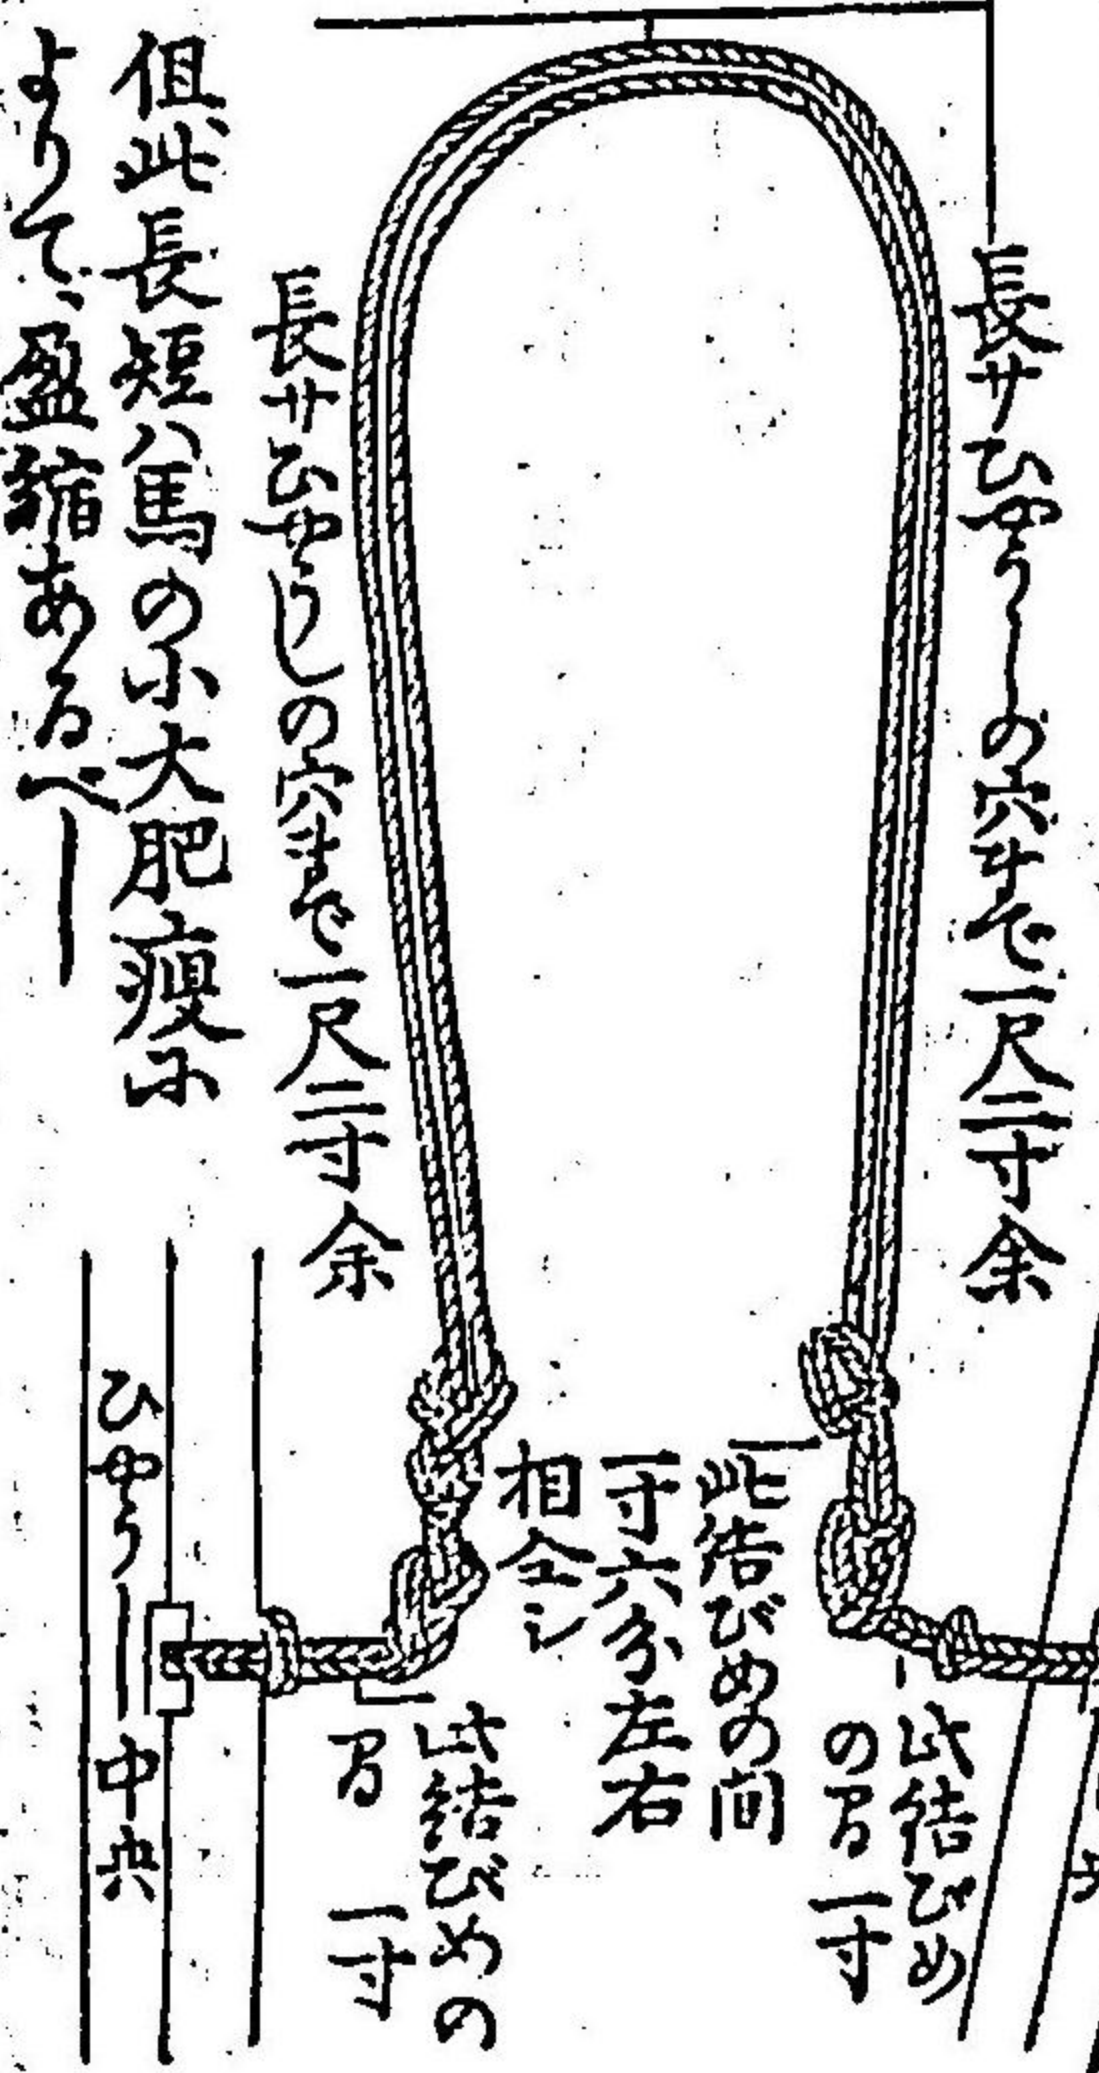 長サひやうしの穴まで一尺二寸余
此結びめ
の間一寸
此結びめの間
一寸六分左右
相仝シ
此結びめの
間 一寸
長サひやうしの穴まで一尺二寸余
但此長短ハ馬の小大肥痩に
よりて、盈縮あるべし
ひやうし中央